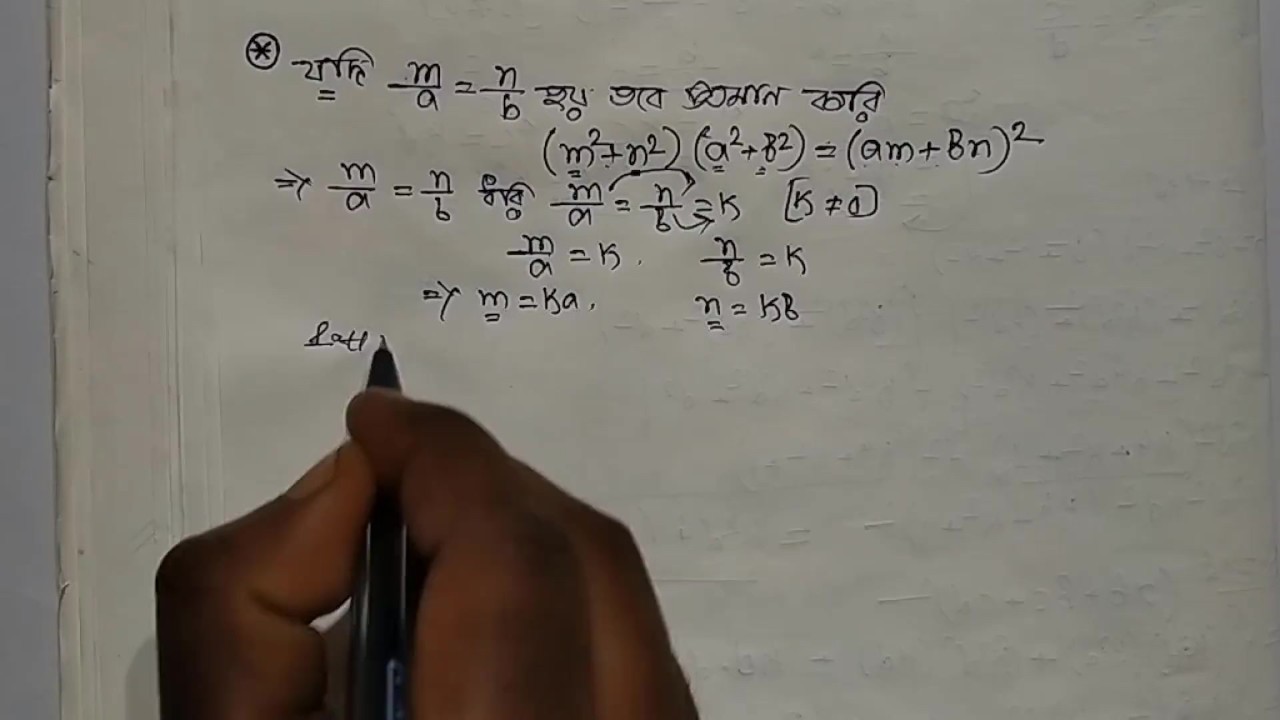 ⊛ যদি m/a = n/b হয় তবে প্রমান করি
(m²+n²) (a²+b²) = (am+bn)²
⇒ m/a = n/b ধরি m/a = n/b = K [K ≠ 0]
m/a = K, n/b = K
⇒ m = Ka, n = Kb